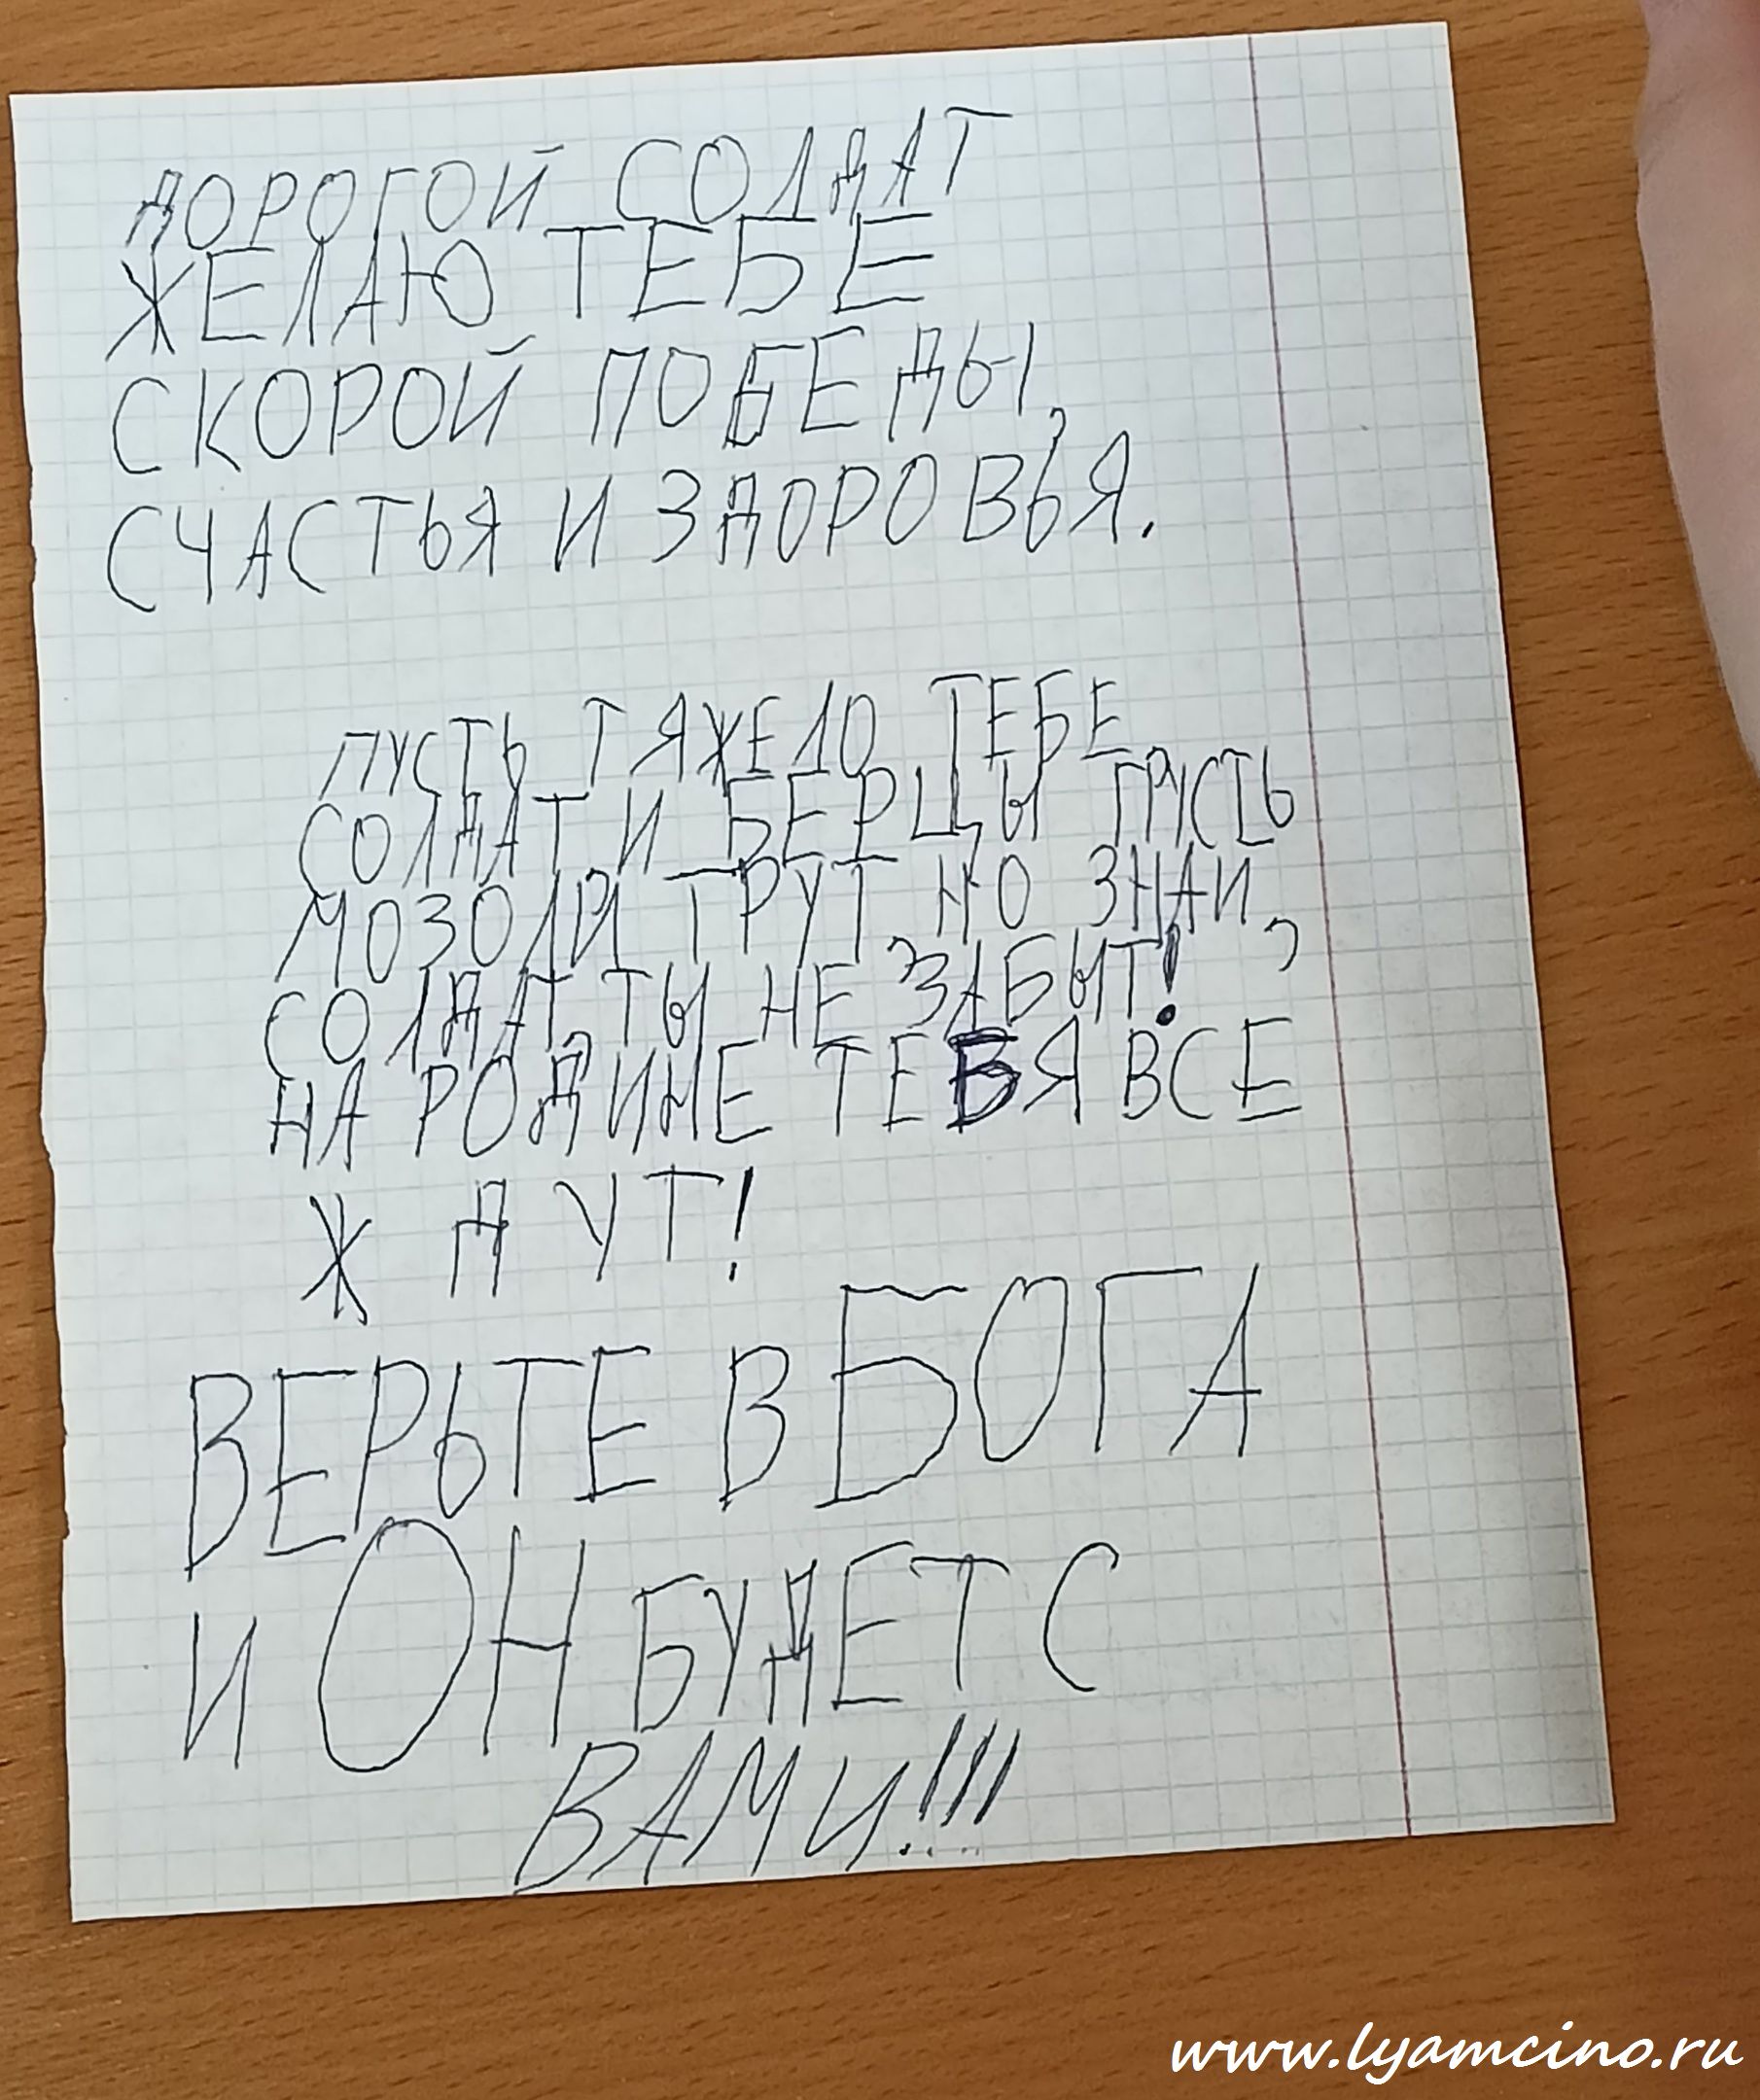 ДОРОГОЙ СОЛДАТ
ЖЕЛАЮ ТЕБЕ
СКОРОЙ ПОБЕДЫ,
СЧАСТЬЯ И ЗДОРОВЬЯ.
ПУСТЬ ТЯЖЕЛО ТЕБЕ
СОЛДАТ, И БЕРЦЫ ПУСТЬ
МОЗОЛИ ТРУТ, НО ЗНАЙ,
СОЛДАТ, ТЫ НЕ ЗАБЫТ!
НА РОДИНЕ ТЕБЯ ВСЕ
ЖДУТ!
ВЕРЬТЕ В БОГА
И ОН БУДЕТ С
ВАМИ!!!
www.lyamcino.ru